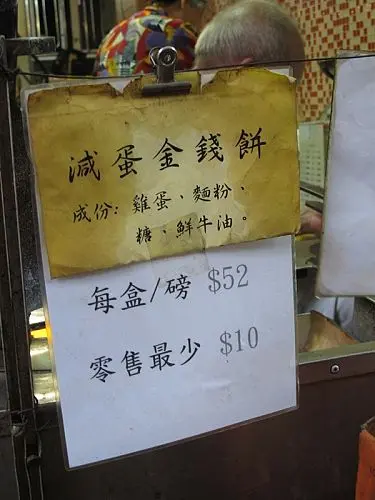 減蛋金錢餅
成份:雞蛋、麵粉、
糖、鮮牛油。
每盒/磅 $52
零售最少 $10